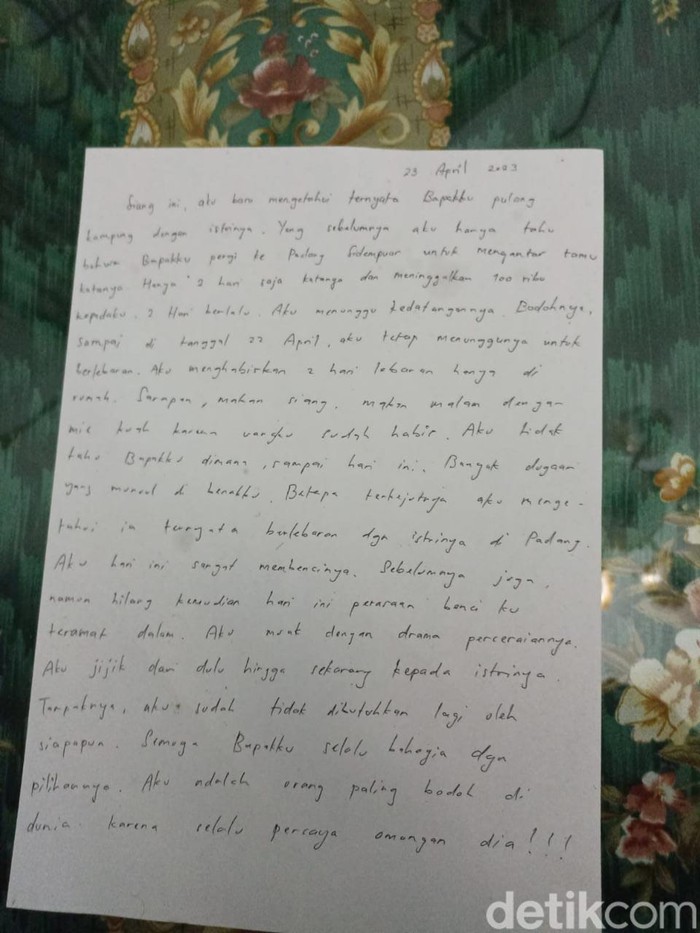 23 April 2023
Siang ini, aku baru mengetahui ternyata Bapakku pulang
kamping dengan istrinya. Yang sebelumnya aku hanya tahu
bahwa Bapakku pergi ke Padang Sidempuan untuk mengantar tamu
katanya Hanya 2 hari saja katanya dan meninggalkan 100 ribu
kepadaku. 2 Hari berlalu. Aku menunggu kedatangannya. Bodohnya,
sampai di tanggal 22 April, aku tetap menunggunya untuk
berlebaran. Aku menghabiskan 2 hari lebaran hanya di
rumah. Sarapan, makan siang, makan malam dengan
mie kuah karena uangku sudah habis. Aku tidak
tahu Bapakku dimana, sampai hari ini. Banyak dugaan
yang muncul di benakku. Betapa terkejutnya aku menge-
tahui ia ternyata berlebaran dgn istrinya di Padang.
Aku hari ini sangat membencinya. Sebelumnya juga,
namun hilang kemudian hari ini perasaan benci ku
teramat dalam. Aku muak dengan drama perceraiannya.
Aku jijik dari dulu hingga sekarang kepada istrinya.
Tampaknya, aku sudah tidak dibutuhkan lagi oleh
siapapun. Semoga Bapakku selalu bahagia dgn
pilihannya. Aku adalah orang paling bodoh di
dunia karena selalu percaya omongan dia!!!
detikcom